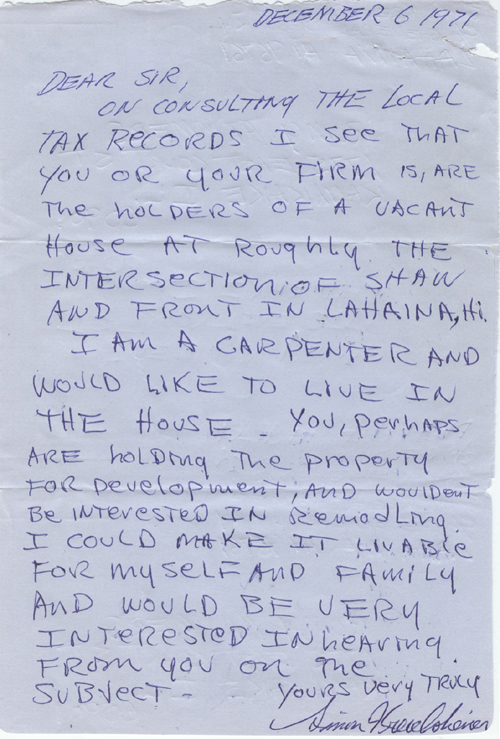 DECEMBER 6 1971
DEAR SIR,
ON CONSULTING THE LOCAL
TAX RECORDS I SEE THAT
YOU OR YOUR FIRM IS, ARE
THE HOLDERS OF A VACANT
HOUSE AT ROUGHLY THE
INTERSECTION OF SHAW
AND FRONT IN LAHAINA, HI.
I AM A CARPENTER AND
WOULD LIKE TO LIVE IN
THE HOUSE - YOU, PERHAPS
ARE HOLDING THE PROPERTY
FOR DEVELOPMENT, AND WOULDENT
BE INTERESTED IN REMODLING.
I COULD MAKE IT LIVABLE
FOR MYSELF AND FAMILY
AND WOULD BE VERY
INTERESTED IN HEARING
FROM YOU ON THE
SUBJECT - YOURS VERY TRULY
Simon